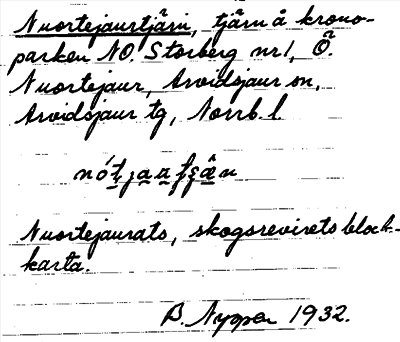 Nuortejaurtjärn, tjärn å krono-
parken NO. Storberg nr 1, Ö.
Nuortejaur, Arvidsjaur sn,
Arvidsjaur tg, Norrb. l.
Nuortejaurats, skogsrevirets block-
karta.
B. 1932.